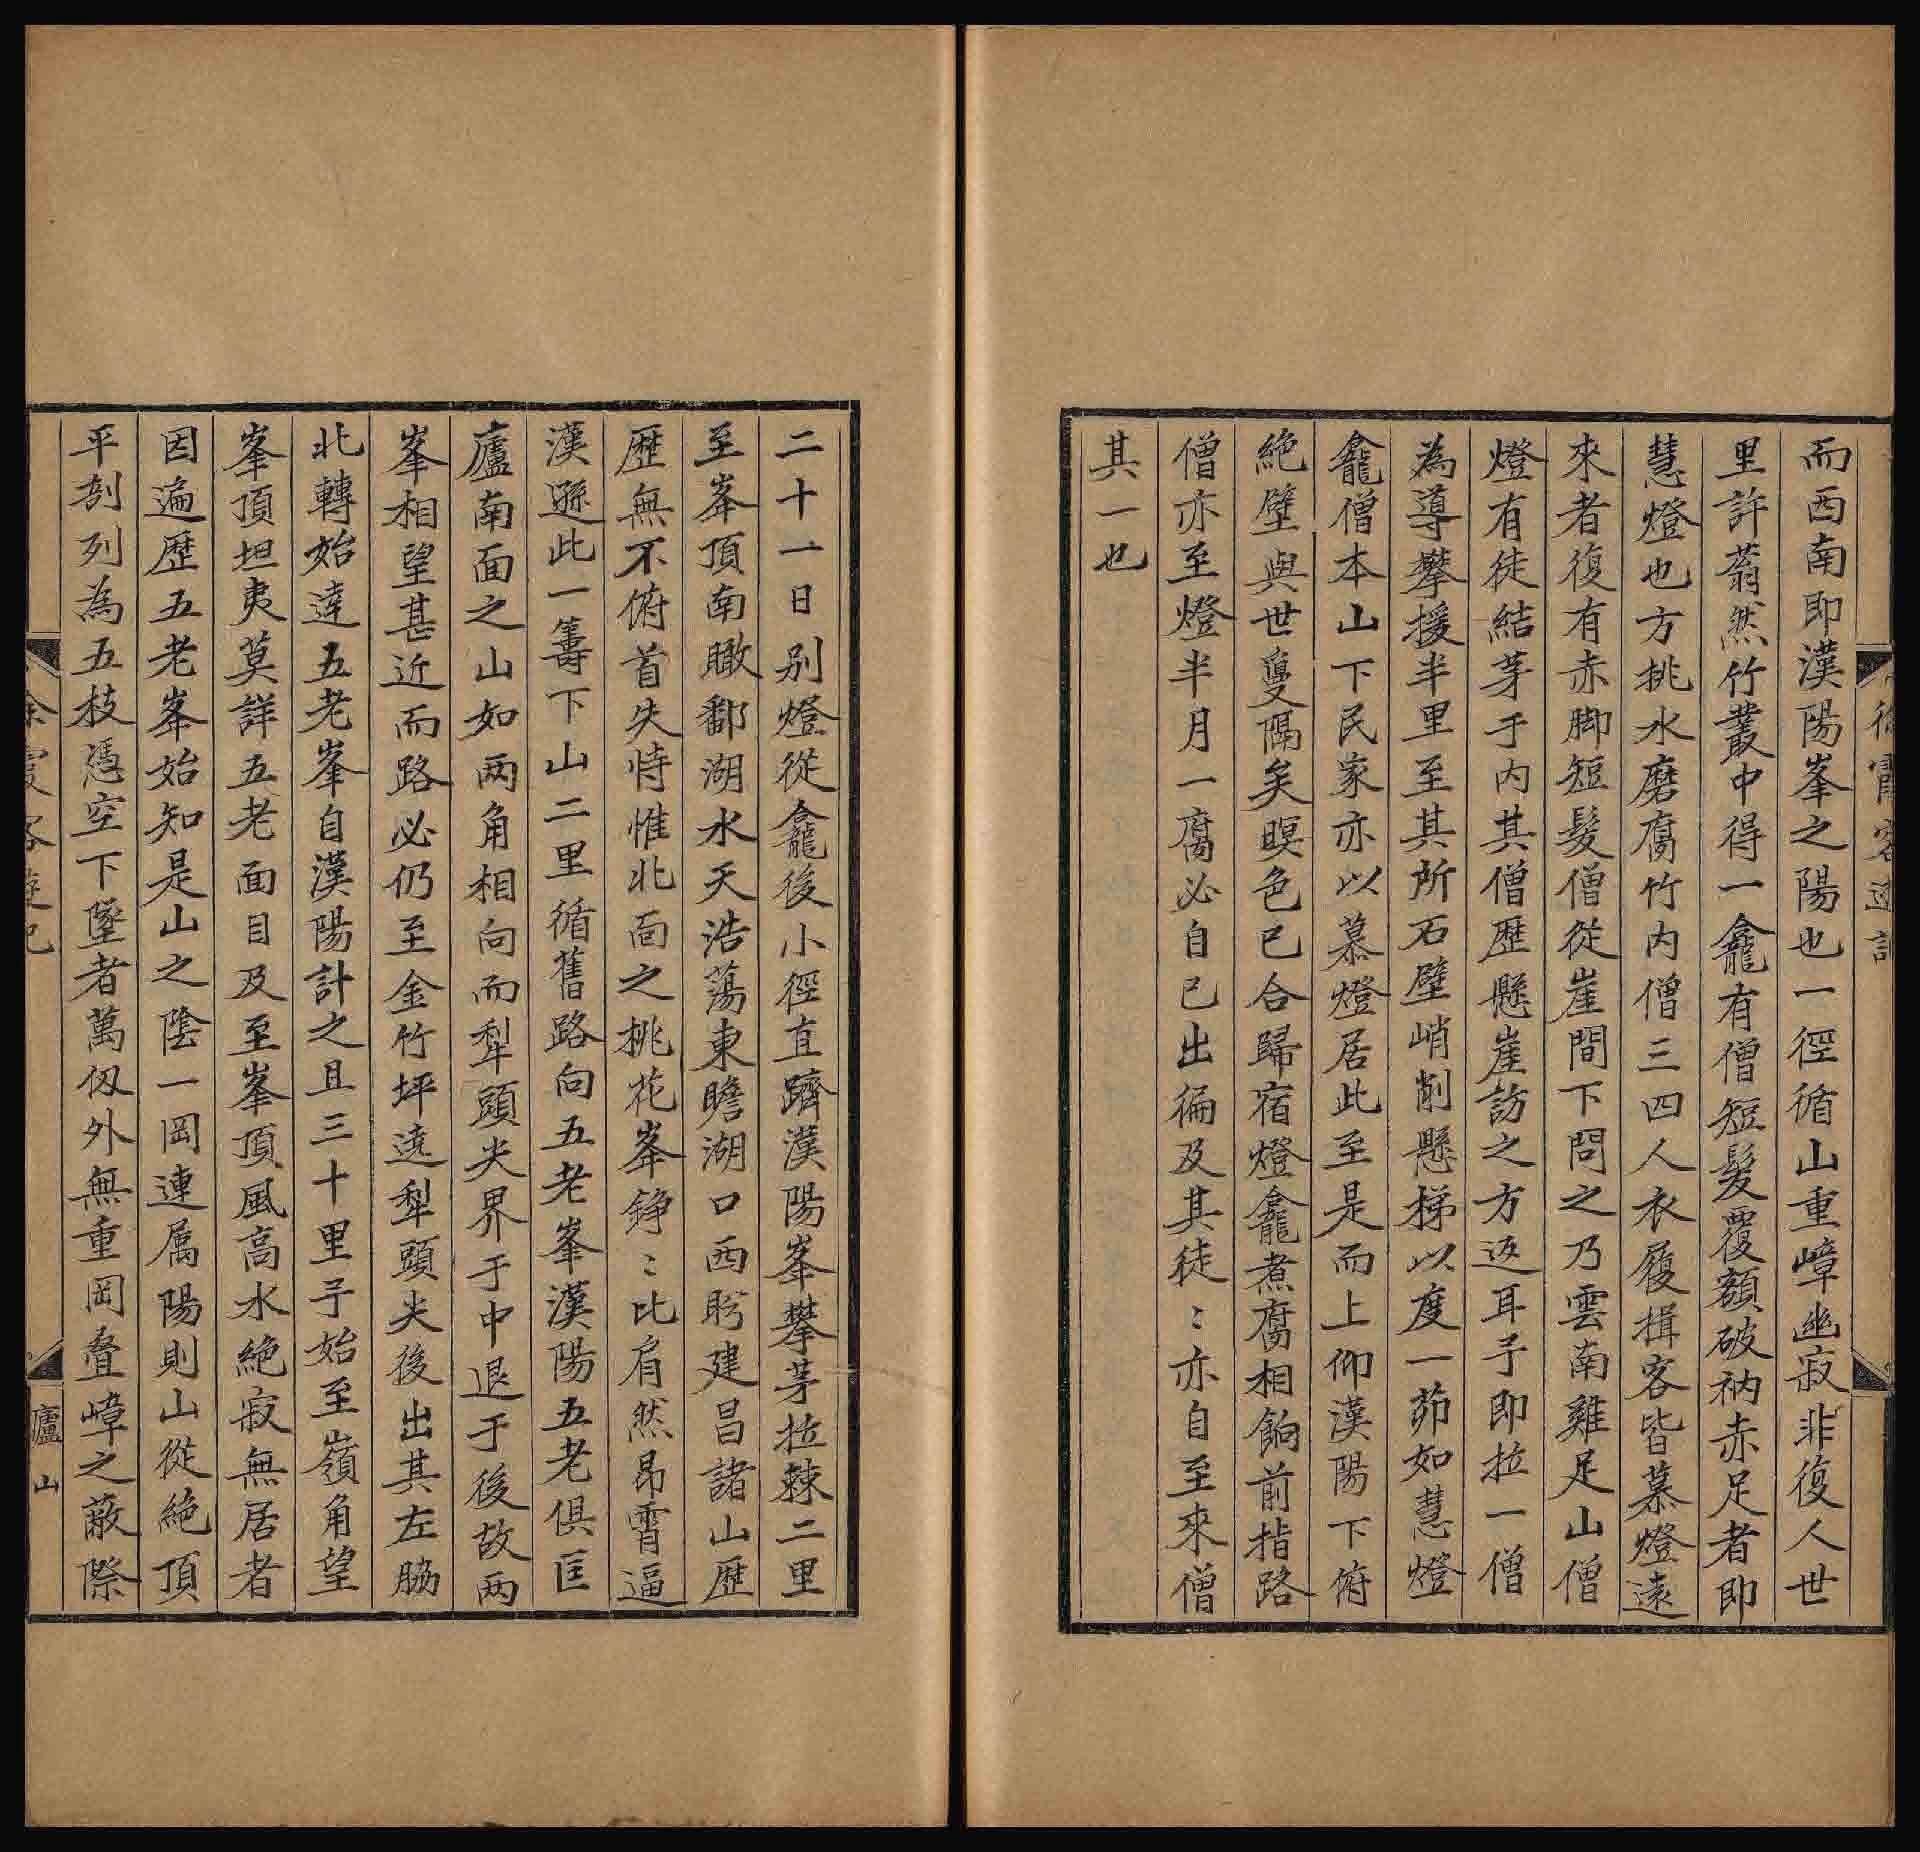 徐霞客遊記
而西南即漢陽峯之陽也一徑循山重嶂幽寂非復人世
里許蓊然竹叢中得一龕有僧短髮覆額破衲赤足者即
慧燈也方挑水磨腐竹内僧三四人衣履揖客皆慕燈遠
來者復有赤脚短髮僧從崖間下問之乃雲南雞足山僧
燈有徒結茅于内其僧歷懸崖訪之方返耳予即拉一僧
為導攀援半里至其所石壁峭削懸梯以度一茆如慧燈
龕僧本山下民家亦以慕燈居此至是而上仰漢陽下俯
絶壁與世敻隔矣暝色已合歸宿燈龕煮腐相餉前指路
僧亦至燈半月一腐必自己出徧及其徒〻亦自至來僧
其一也
二十一日别燈從龕後小徑直躋漢陽峯攀茅拉棘二里
至峯頂南瞰鄱湖水天浩蕩東瞻湖口西盻建昌諸山歷
歷無不俯首失恃惟北面之桃花峯錚〻比肩然昂霄逼
漢遜此一籌下山二里循舊路向五老峯漢陽五老俱匡
廬南面之山如两角相向而犁頭尖界于中退于後故两
峯相望甚近而路必仍至金竹坪遶犁頭尖後出其左脇
北轉始達五老峯自漢陽計之且三十里予始至嶺角望
峯頂坦夷莫詳五老面目及至峯頂風高水絶寂無居者
因遍歷五老峯始知是山之陰一岡連属陽則山從絶頂
平剖列為五枝憑空下墜者萬仭外無重岡疊嶂之蔽際
徐霞客遊記
廬山